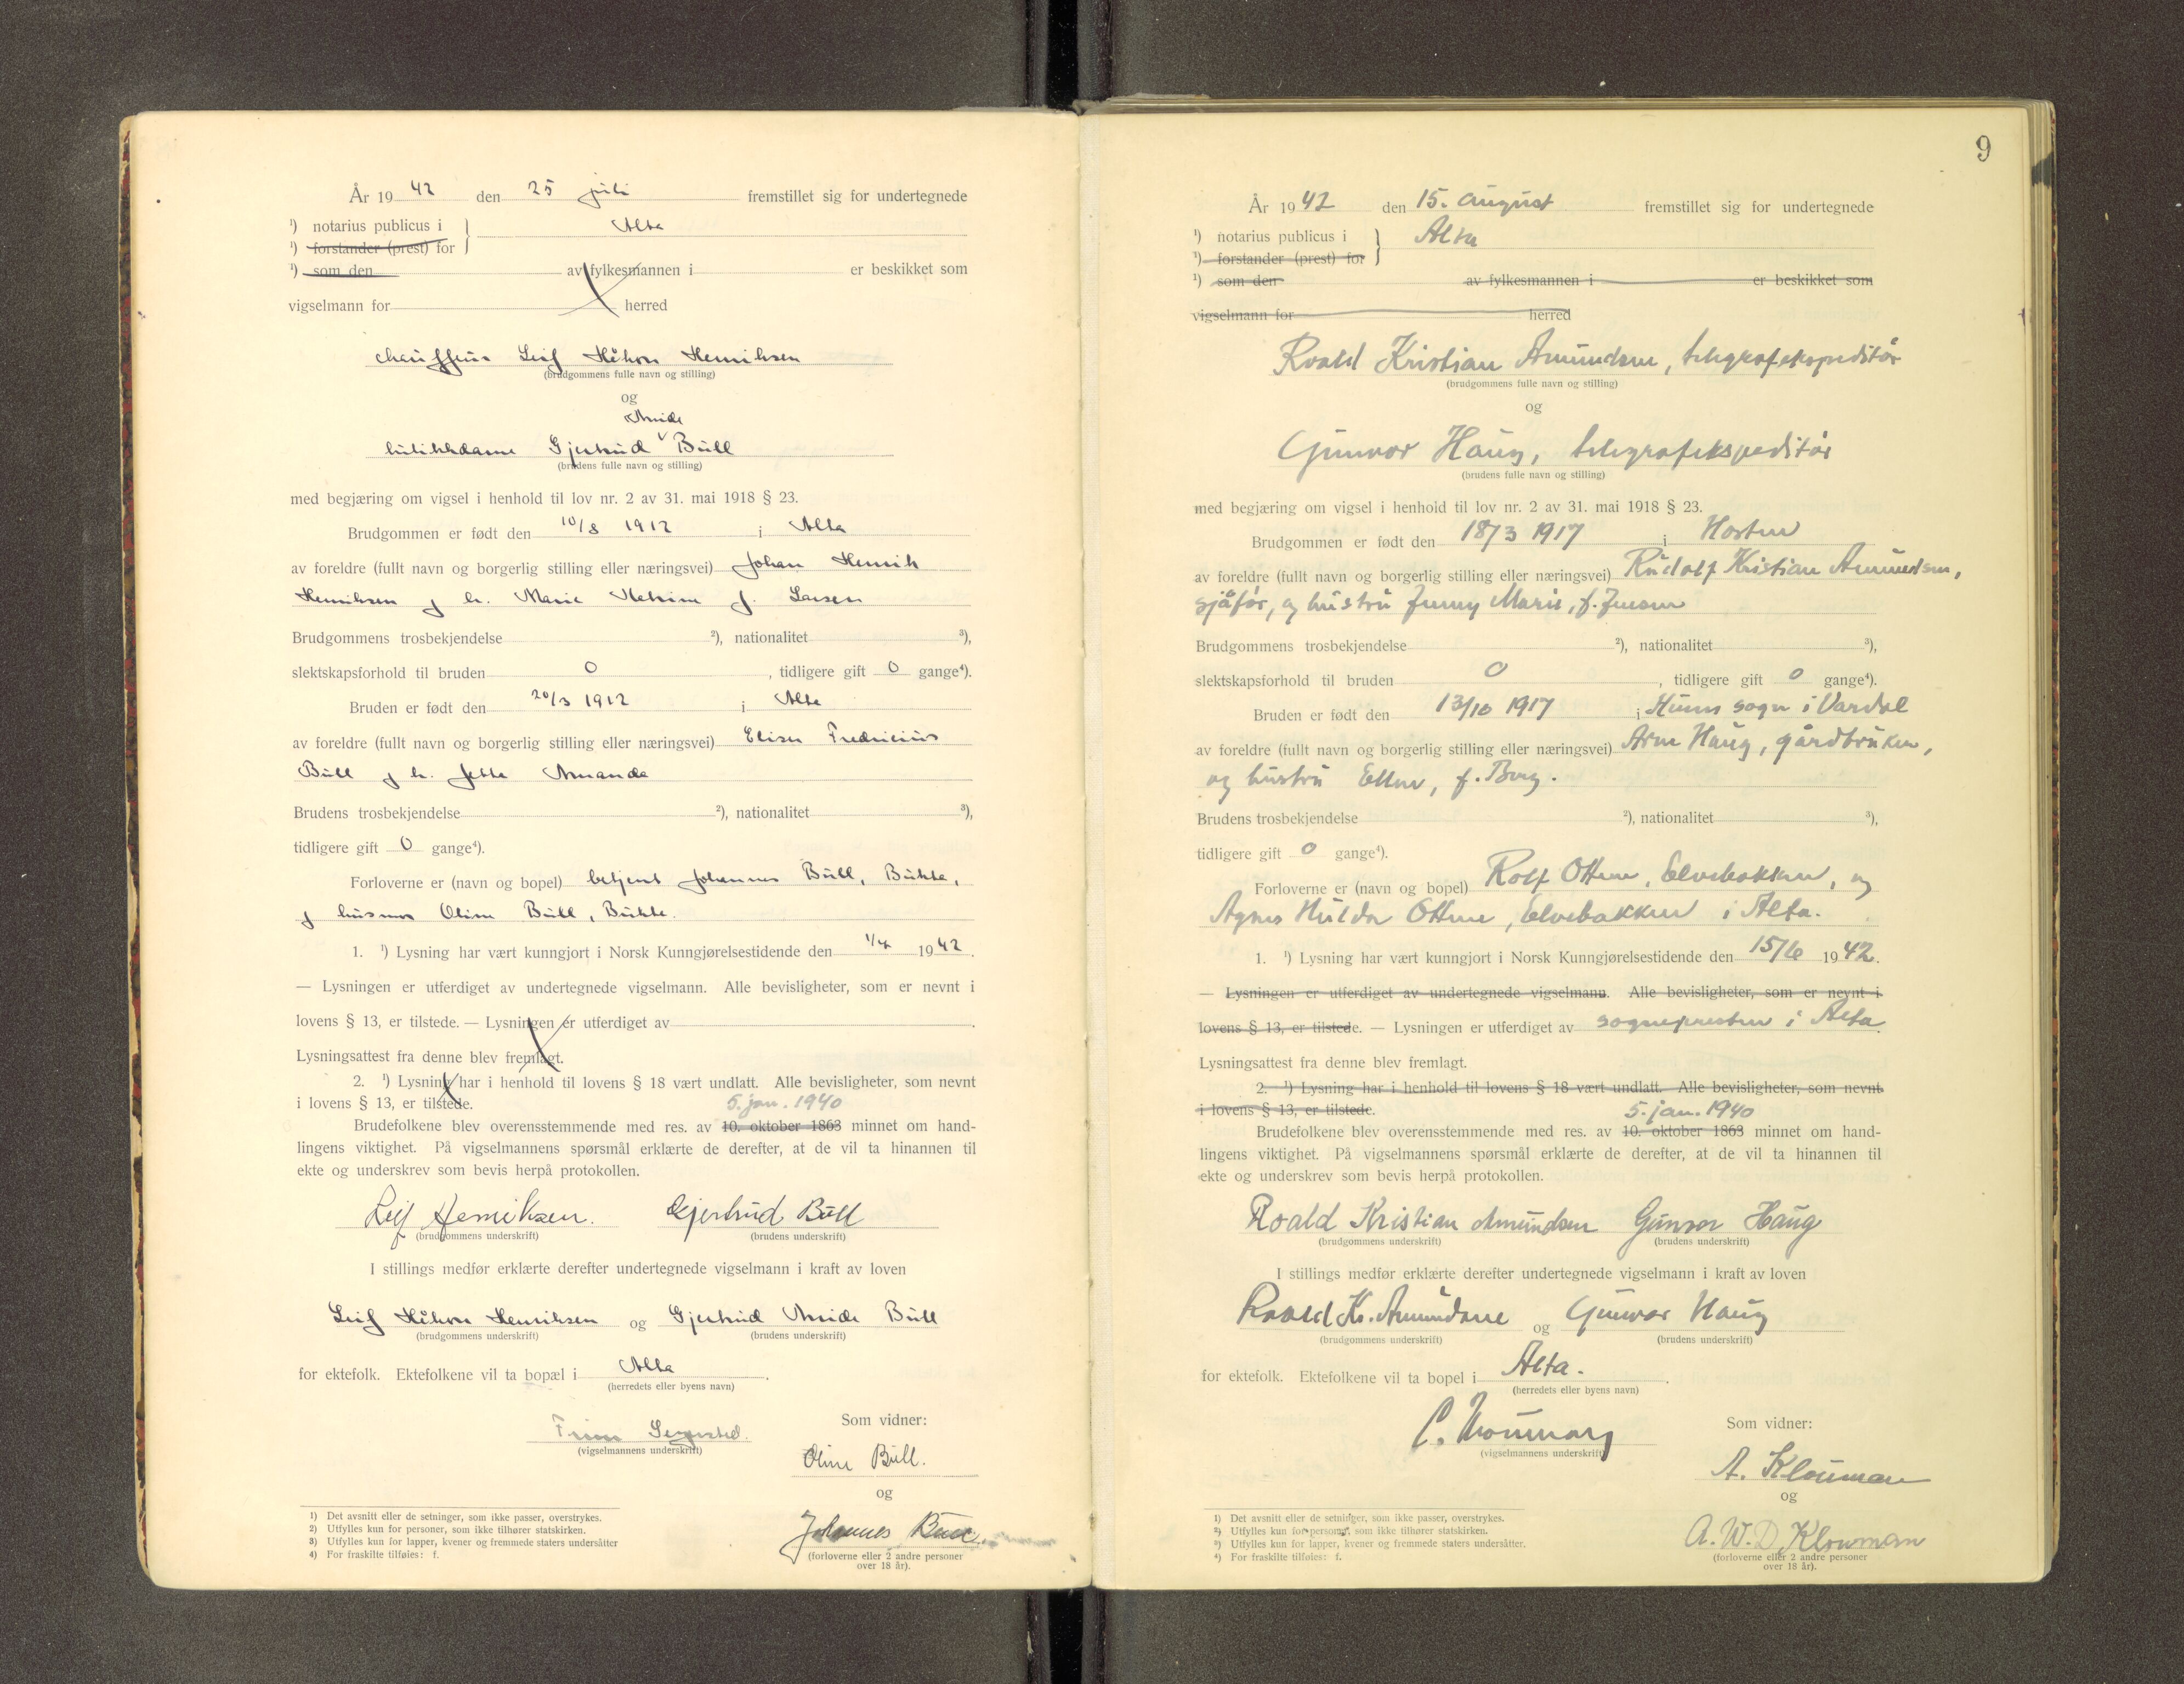 År 1942 den 25 juli fremstillet sig for undertegnede
¹) notarius publicus i
Alta
¹) forstander (prest) for
¹) som den av fylkesmannen i er beskikket som
vigselmann for herred
chauffeur Leif Håkon Henriksen
(brudgommens fulle navn og stilling)
og
butikkdame Gjertrud Bull
(brudens fulle navn og stilling)
med begjæring om vigsel i henhold til lov nr. 2 av 31. mai 1918 § 23.
Brudgommen er født den 10/8 1912 i Alta
av foreldre (fullt navn og borgerlig stilling eller næringsvei) Johan Henrik
Henriksen g h. Marie f. Larsen
Brudgommens trosbekjendelse ²), nationalitet ³),
slektskapsforhold til bruden 0, tidligere gift 0 gange⁴).
Bruden er født den 20/3 1912 i Alta
av foreldre (fullt navn og borgerlig stilling eller næringsvei) Eliser Fredricius
Bull g h. Jetta Amanda
Brudens trosbekjendelse ²), nationalitet ³),
tidligere gift 0 gange⁴).
Forloverne er (navn og bopel) betjent Johannes Bull, Bukta,
g husmor Oline Bull, Bukta.
1. ¹) Lysning har vært kunngjort i Norsk Kunngjørelsestidende den 1/4 1942.
— Lysningen er utferdiget av undertegnede vigselmann. Alle bevisligheter, som er nevnt i
lovens § 13, er tilstede. — Lysningen er utferdiget av .
Lysningsattest fra denne blev fremlagt.
2. ¹) Lysning har i henhold til lovens § 18 vært undlatt. Alle bevisligheter, som nevnt
i lovens § 13, er tilstede. 5. jan. 1940
Brudefolkene blev overensstemmende med res. av 10. oktober 1863 minnet om hand-
lingens viktighet. På vigselmannens spørsmål erklærte de derefter, at de vil ta hinannen til
ekte og underskrev som bevis herpå protokollen.
Leif Henriksen. Gjertrud Bull
(brudgommens underskrift) (brudens underskrift)
I stillings medfør erklærte derefter undertegnede vigselmann i kraft av loven
Leif Håkon Henriksen og Gjertrud Bull
(brudgommens underskrift) (brudens underskrift)
for ektefolk. Ektefolkene vil ta bopæl i Alta.
(herredets eller byens navn)
(vigselmannens underskrift)
Som vidner:
Oline Bull.
og
Johannes Bull.
(forloverne eller 2 andre personer
over 18 år).
1) Det avsnitt eller de setninger, som ikke passer, overstrykes.
2) Utfylles kun for personer, som ikke tilhører statskirken.
3) Utfylles kun for lapper, kvener og fremmede staters undersåtter
4) For fraskilte tilføies: f.
9
År 1942 den 15. august fremstillet sig for undertegnede
¹) notarius publicus i
Alta
¹) forstander (prest) for
¹) som den av fylkesmannen i er beskikket som
vigselmann for herred
Roald Kristian Amundsen, telegrafekspeditør
(brudgommens fulle navn og stilling)
og
Gunvor Haug, telegrafekspeditør
(brudens fulle navn og stilling)
med begjæring om vigsel i henhold til lov nr. 2 av 31. mai 1918 § 23.
Brudgommen er født den 18/3 1917 i Horten
av foreldre (fullt navn og borgerlig stilling eller næringsvei) Rudolf Kristian Amundsen,
sjåfør, og hustru Jenny Marie, f. Jensen
Brudgommens trosbekjendelse ²), nationalitet ³),
slektskapsforhold til bruden 0, tidligere gift 0 gange⁴).
Bruden er født den 13/10 1917 i Hunns sogn i Vardal
av foreldre (fullt navn og borgerlig stilling eller næringsvei) Arne Haug, gårdbruker,
og hustru Ellen, f. Berg.
Brudens trosbekjendelse ²), nationalitet ³),
tidligere gift 0 gange⁴).
Forloverne er (navn og bopel) Rolf Ottem, Elvebakken, og
Agnes Hulda Ottem, Elvebakken i Alta.
1. ¹) Lysning har vært kunngjort i Norsk Kunngjørelsestidende den 15/6 1942.
— Lysningen er utferdiget av undertegnede vigselmann. Alle bevisligheter, som er nevnt i
lovens § 13, er tilstede. — Lysningen er utferdiget av sognepresten i Alta.
Lysningsattest fra denne blev fremlagt.
2. ¹) Lysning har i henhold til lovens § 18 vært undlatt. Alle bevisligheter, som nevnt
i lovens § 13, er tilstede. 5. jan. 1940
Brudefolkene blev overensstemmende med res. av 10. oktober 1863 minnet om hand-
lingens viktighet. På vigselmannens spørsmål erklærte de derefter, at de vil ta hinannen til
ekte og underskrev som bevis herpå protokollen.
Roald Kristian Amundsen Gunvor Haug
(brudgommens underskrift) (brudens underskrift)
I stillings medfør erklærte derefter undertegnede vigselmann i kraft av loven
Roald Kr. Amundsen og Gunvor Haug
(brudgommens underskrift) (brudens underskrift)
for ektefolk. Ektefolkene vil ta bopel i Alta.
(herredets eller byens navn)
(vigselmannens underskrift)
Som vidner:
A. Klouman
og
A. W. D. Klouman
(forloverne eller 2 andre personer
over 18 år).
¹) Det avsnitt eller de setninger, som ikke passer, overstrykes.
²) Utfylles kun for personer, som ikke tilhører statskirken.
³) Utfylles kun for lapper, kvener og fremmede staters undersåtter.
⁴) For fraskilte tilføies: f.